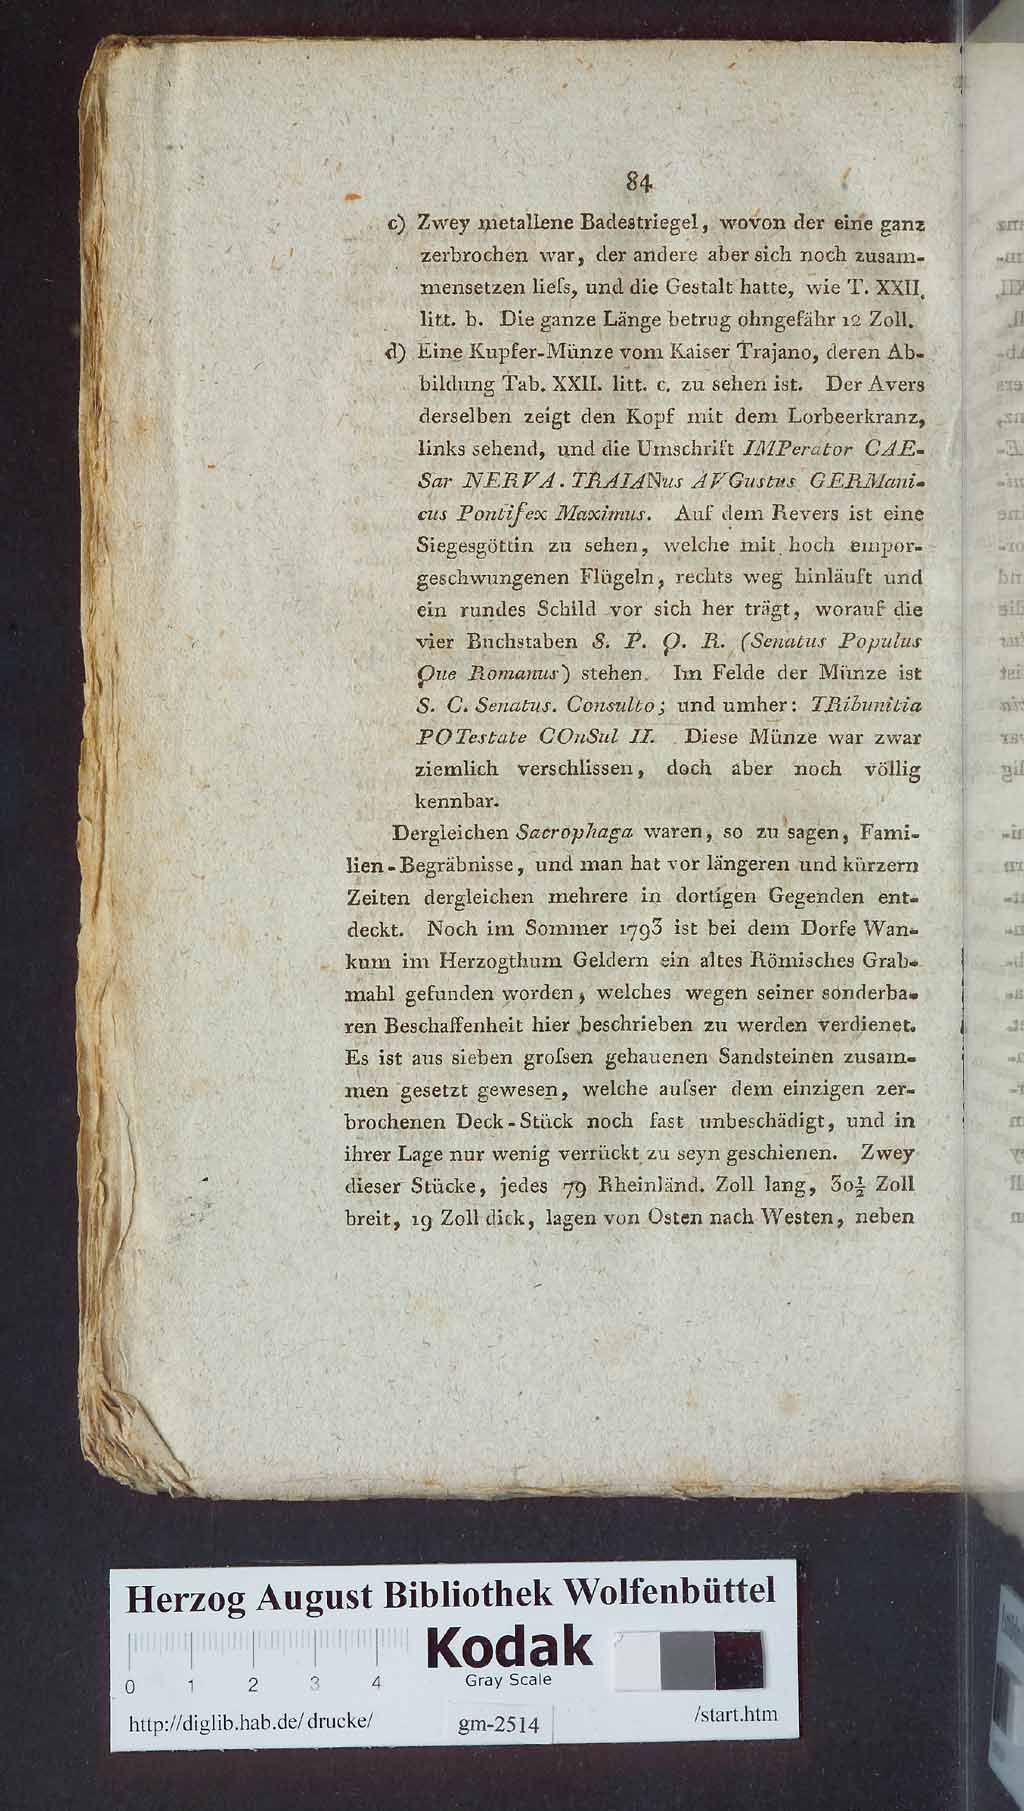 84
c) Zwey metallene Badestriegel, wovon der eine ganz
zerbrochen war, der andere aber sich noch zusam-
mensetzen liefs, und die Gestalt hatte, wie T. XXII.
litt. b. Die ganze Länge betrug ohngefähr 12 Zoll.
d) Eine Kupfer-Münze vom Kaiser Trajano, deren Ab-
bildung Tab. XXII. litt. c. zu sehen ist. Der Avers
derselben zeigt den Kopf mit dem Lorbeerkranz,
links sehend, und die Umschrift IMPerator CAE-
Sar NERVA. TRAIANus AVGustus GERMani-
cus Pontifex Maximus. Auf dem Revers ist eine
Siegesgöttin zu sehen, welche mit hoch empor-
geschwungenen Flügeln, rechts weg hinläuft und
ein rundes Schild vor sich her trägt, worauf die
vier Buchstaben S. P. Q. R. (Senatus Populus
Que Romanus) stehen. Im Felde der Münze ist
S. C. Senatus. Consulto; und umher: TRibunitia
POTestate COnSul II. Diese Münze war zwar
ziemlich verschlissen, doch aber noch völlig
kennbar.
Dergleichen Sacrophaga waren, so zu sagen, Fami-
lien-Begräbnisse, und man hat vor längeren und kürzern
Zeiten dergleichen mehrere in dortigen Gegenden ent-
deckt. Noch im Sommer 1793 ist bei dem Dorfe Wan-
kum im Herzogthum Geldern ein altes Römisches Grab-
mahl gefunden worden, welches wegen seiner sonderba-
ren Beschaffenheit hier beschrieben zu werden verdienet.
Es ist aus sieben grofsen gehauenen Sandsteinen zusam-
men gesetzt gewesen, welche aufser dem einzigen zer-
brochenen Deck-Stück noch fast unbeschädigt, und in
ihrer Lage nur wenig verrückt zu seyn geschienen. Zwey
dieser Stücke, jedes 79 Rheinländ. Zoll lang, 30½ Zoll
breit, 19 Zoll dick, lagen von Osten nach Westen, neben
Herzog August Bibliothek Wolfenbüttel
Kodak
Gray Scale
0 1 2 3 4
http://diglib.hab.de/drucke/ gm-2514 /start.htm